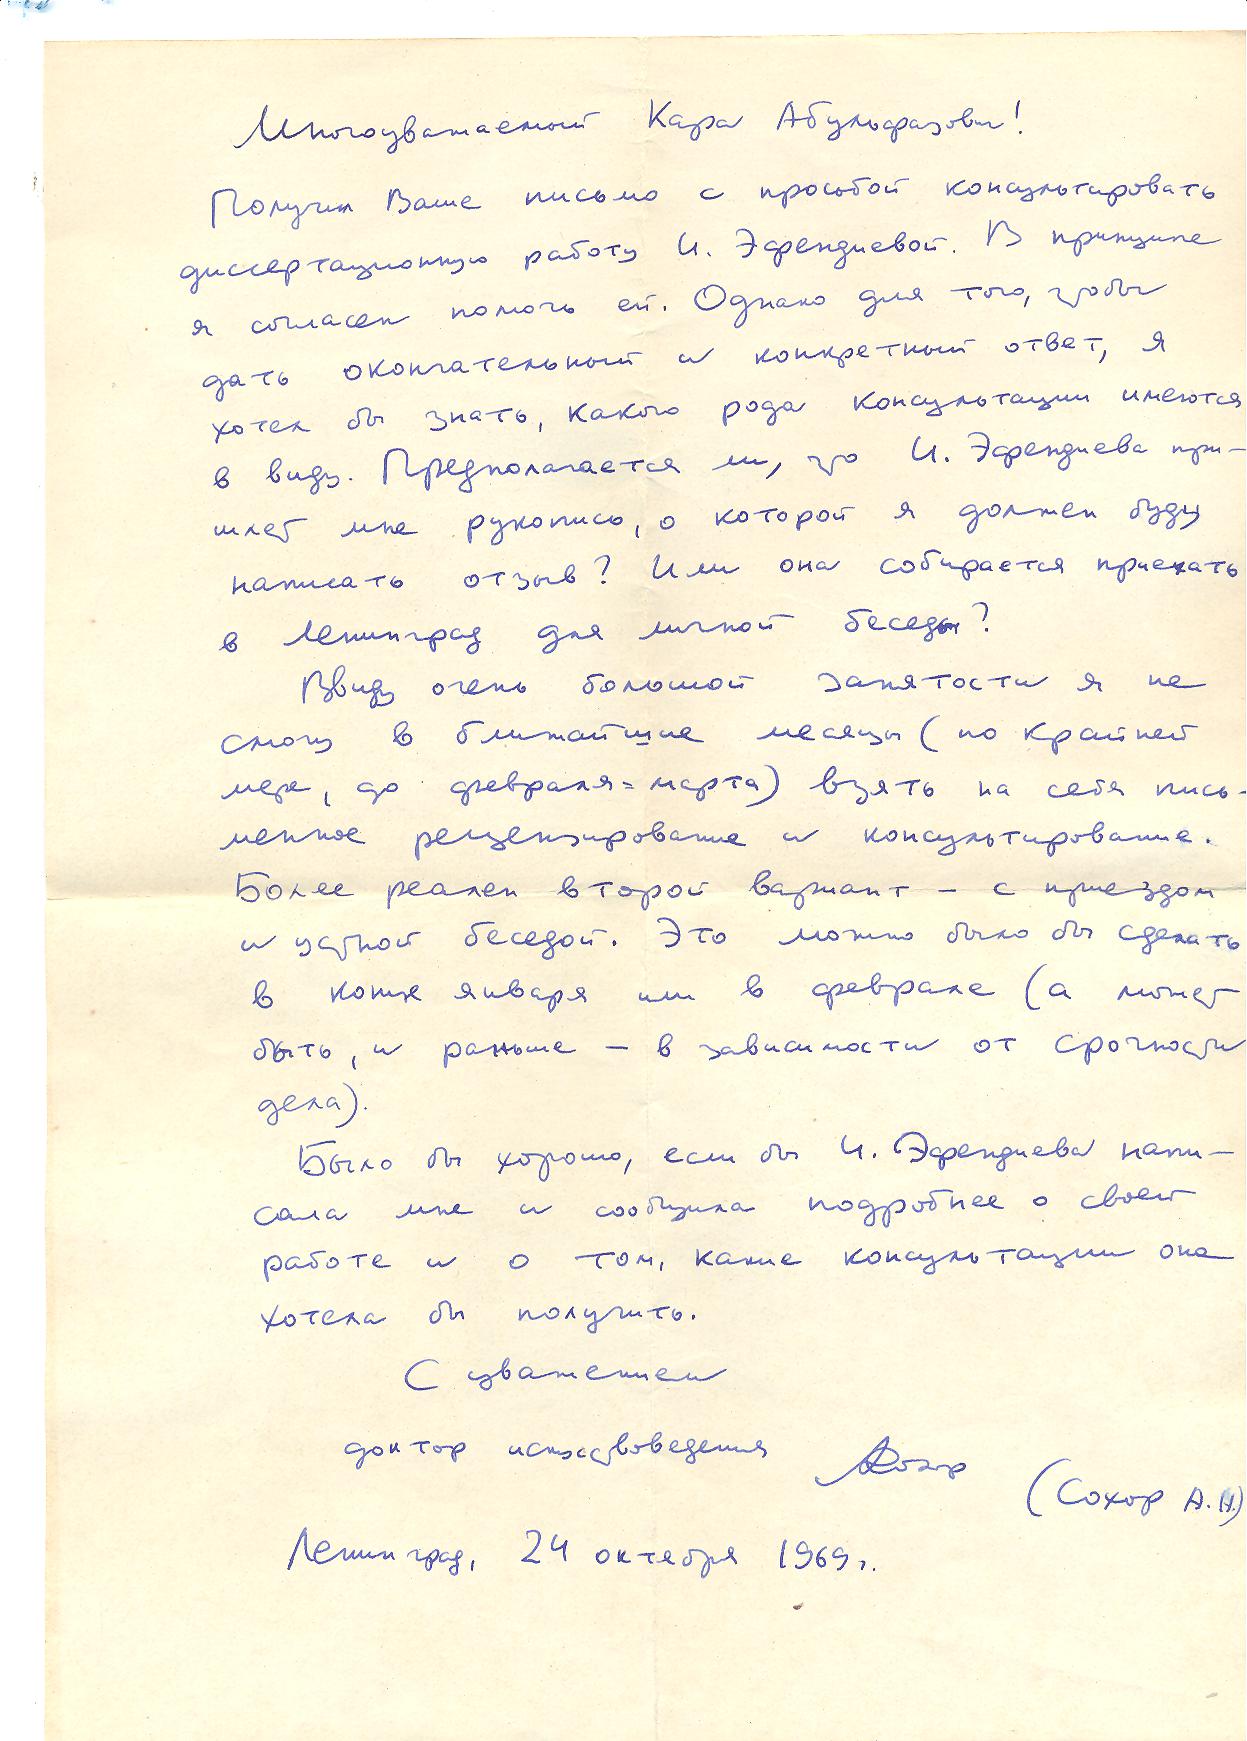 Многоуважаемый Кара Абульфазович!
Получил Ваше письмо с просьбой консультировать
диссертационную работу И. Эфендиевой. В принципе
я согласен помочь ей. Однако для того, чтобы
дать окончательный и конкретный ответ, я
хотел бы знать, какого рода консультации имеются
в виду. Предполагается ли, что И. Эфендиева при-
шлет мне рукопись, о которой я должен буду
написать отзыв? Или она собирается приехать
в Ленинград для личной беседы?
Ввиду очень большой занятости я не
смогу в ближайшие месяцы (по крайней
мере, до февраля=марта) взять на себя пись-
менное рецензирование и консультирование.
Более реален второй вариант – с приездом
и устной беседой. Это можно было бы сделать
в конце января или в феврале (а может
быть, и раньше – в зависимости от срочности
дела).
Было бы хорошо, если бы И. Эфендиева напи-
сала мне и сообщила подробнее о своей
работе и о том, какие консультации она
хотела бы получить.
С уважением
доктор искусствоведения АСохор (Сохор А.Н.)
Ленинград, 24 октября 1969г.